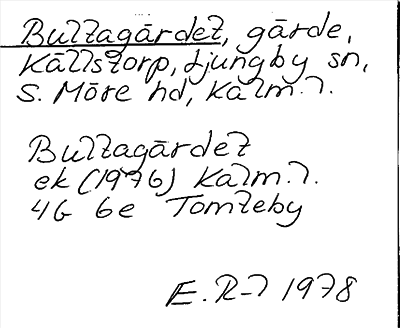 Bultagärdet, gärde,
Källstorp, Ljungby sn,
S. Möre hd, Kalm. l.
Bultagärdet
ek (1976) Kalm. l.
4G 6e Tomteby
E. R-l 1978